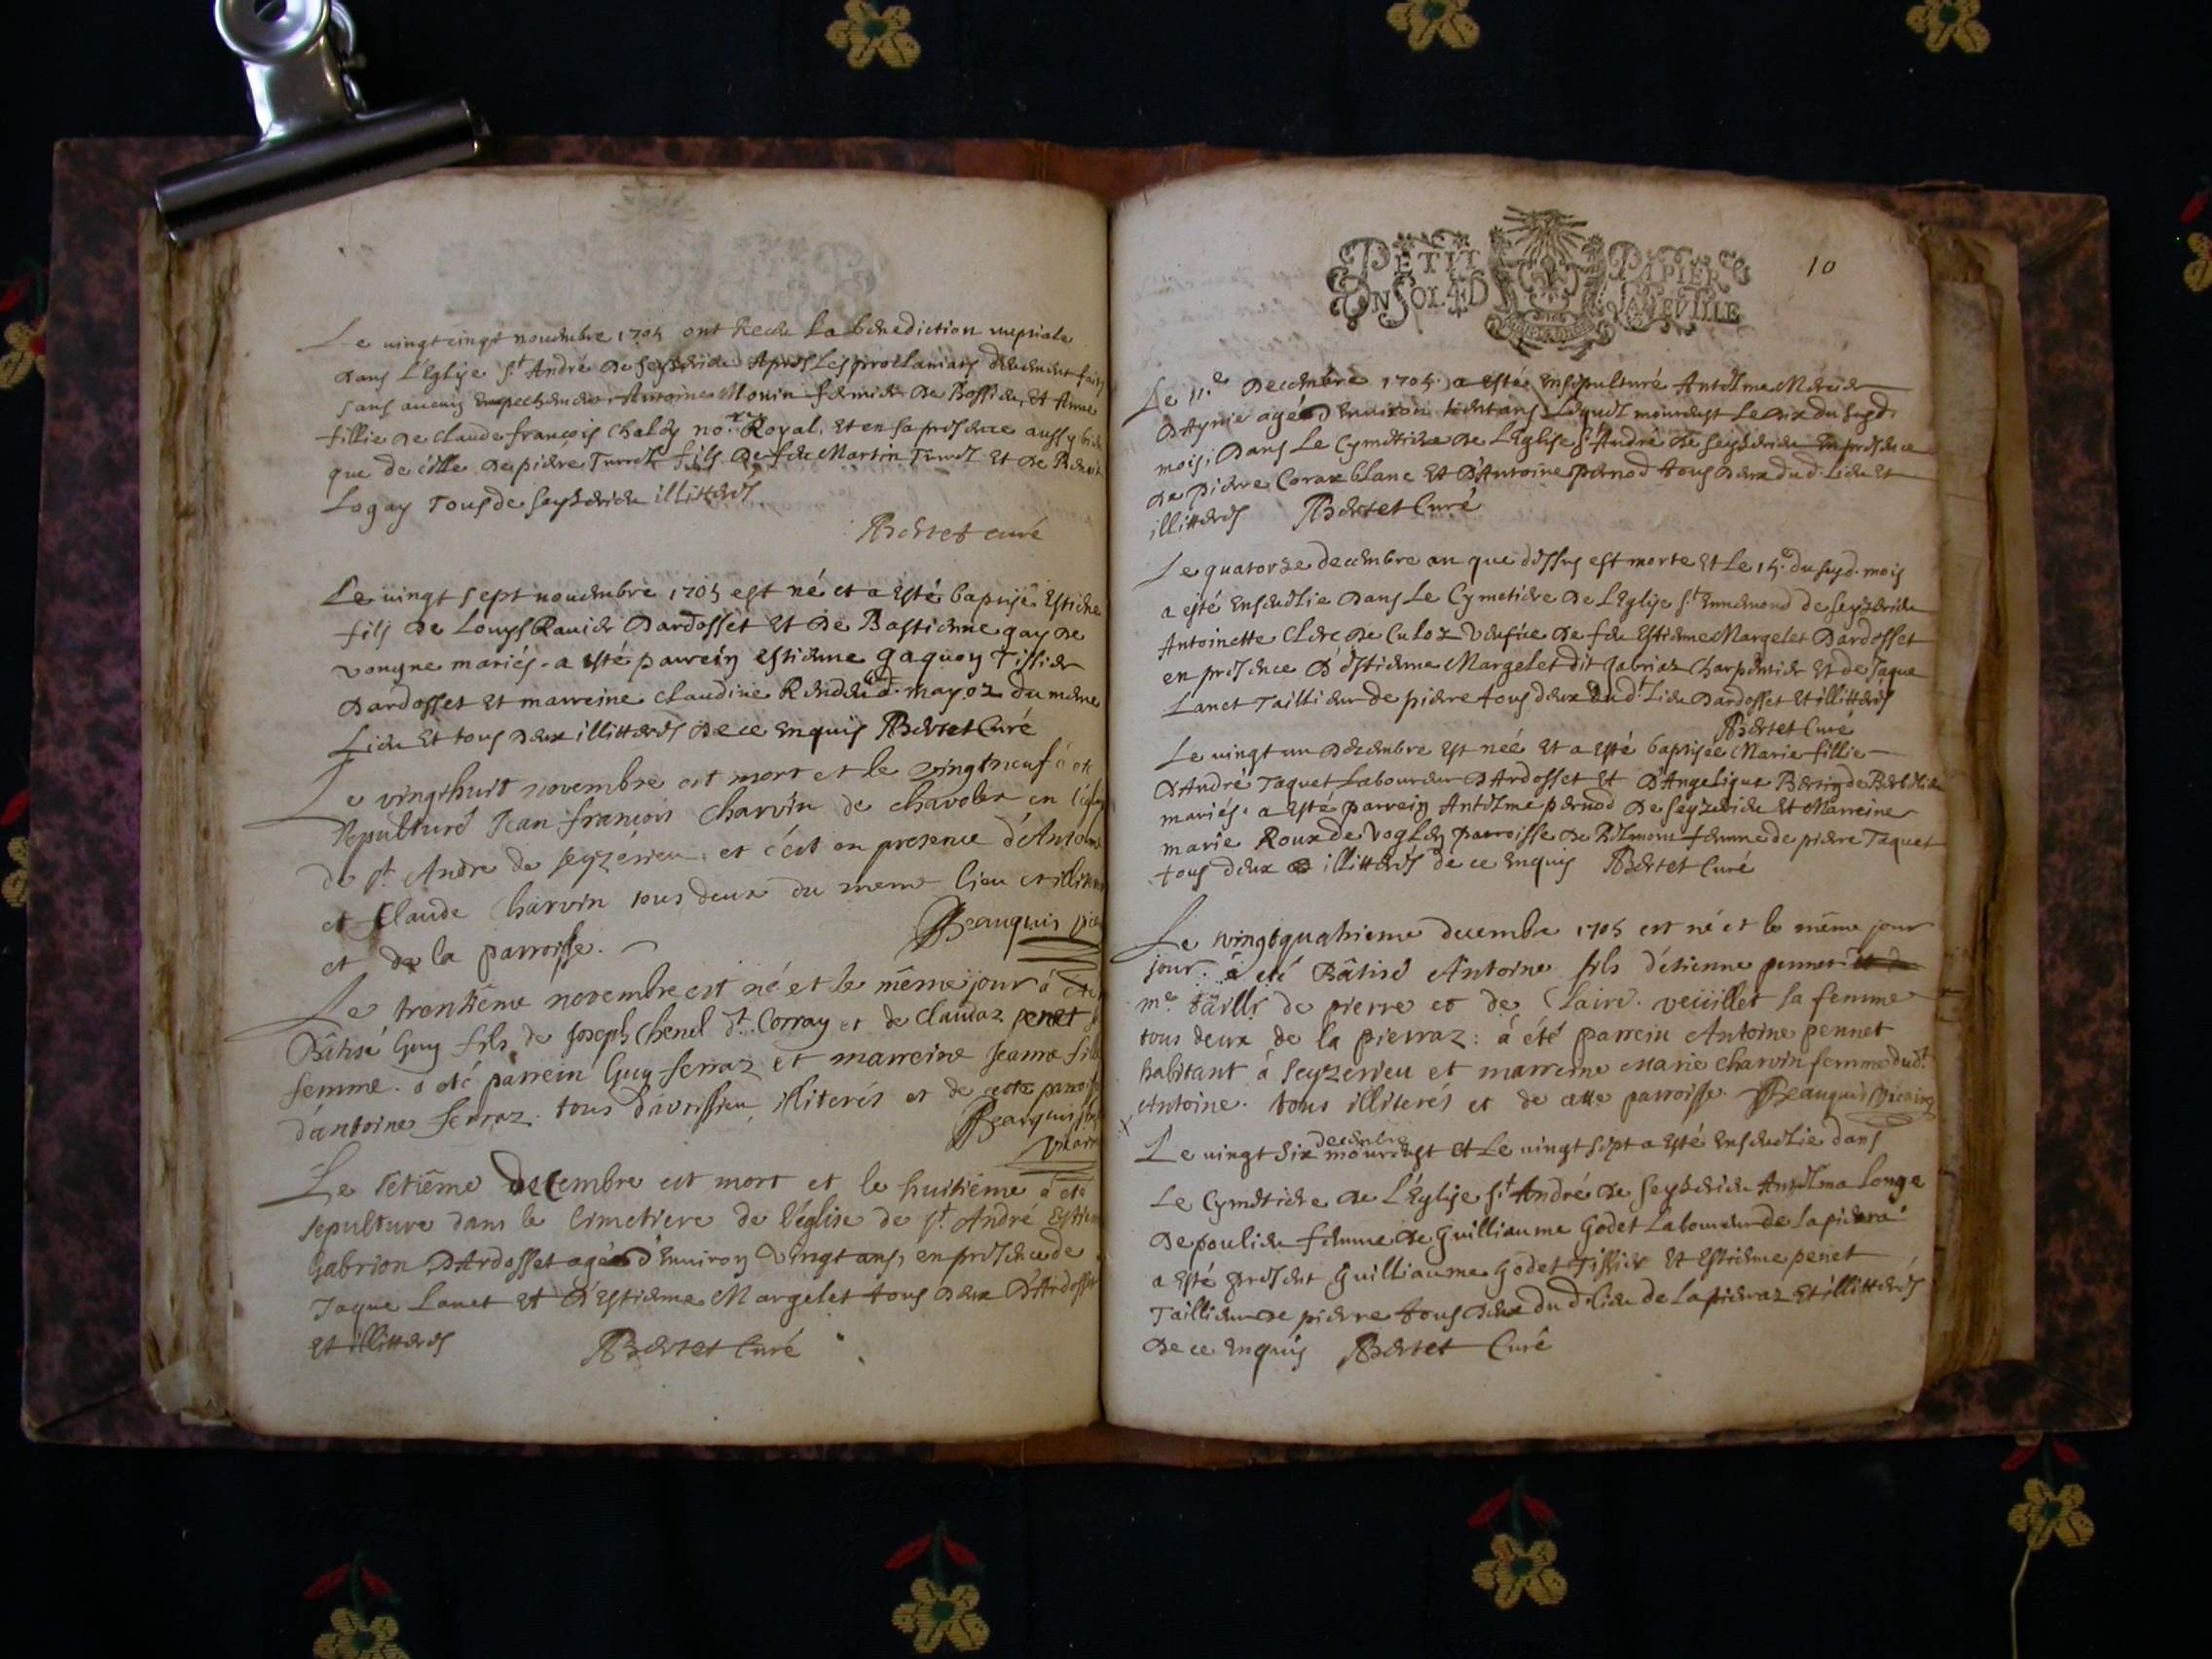 Le vingt cinqt novembre 1705 ont Receu La benediction nuptiale
Dans L'Eglise St André De seyzerieu Apres Les proclamaõns deuement faites
sans aucuns Empechemens Antoine Monin fermier De Rossi et Anne
fillie De Claude françois Chaley nore Royal, Et en sa presence aussy bien
que de celle De pierre Turrel fils De feu Martin Turrel Et De Benoit
Logay Tous de seyzerieu illitterés
Bertet curé
Le vingt sept novembre 1705 est né et a Esté baptisé Estiene
fils De Louys Ravier Dardosset Et De Bastienne gay De
vongne mariés. a Esté parrein estienne gaquoy Tissier
Dardosset Et marreine Claudine Rendu d. mayoz du meme
Lieu Et tous Deux illitterés De ce Enquis Bertet Curé
Le vingthuit novembre est mort et le vingtneuf à eté
sepulturé Jean françois Charvin de chavolex en l'eglise
de st. Andre de seyzerieu, et c'est en presence d'Antoine
et Claude Charvin tous deux du meme lieu et illiterés
et de la parroisse. Beauquis vicaire
Le trentiême novembre est né et le même jour à été
Bâtisé Guy fils de Joseph Chenel dt. Corray et de Claudaz penet sa
femme. à eté parrein Guy ferraz et marreine Jeanne fille
d'antoine ferraz. tous d'avrissieu, illiterés et de cette parroisse
Beauquis
vicaire
Le sêtiême Decembre est mort et le huitiême à eté
sepulturé dans le Cimetiere de l'église de st. André Estiene
Gabrion D'Ardosset agé d'Environ Vingt ans, en presence de
Jaque Lanet Et D'Estienne Margelet tous Deux D'Ardosset
Et illitterés Bertet Curé
PETIT PAPIER
UN SOL 4 D LA FEVILLE
10
Le 11e Decembre 1705. a Esté Ensepulturé Antelme Mercier
D'Aynie agé D'Environ trent ans Lequel mourust Le dix du susd.
mois, Dans Le Cymetiere De L'Eglise St André De seyzerieu En presence
De pierre Corax blanc Et D'Antoine pernod tous Deux du d. Lieu Et
illitterés Bertet Curé
Le quatorze decembre an que dessus est morte Et Le 15e. du susd. mois
a esté Ensevelie Dans Le Cymetiere De L'Eglise St Ennemond de seyzerieu
Antoinette Clerc De Culoz Veufve De feu Estienne Margelet Dardosset
en presence D'estienne Margelet dit gabriaz Charpentier Et de Jaque
Lanet Taillieur de pierre tous deux Dud. Lieu Dardosset Et illitterés
Bertet Curé
Le vingt un Decembre Est née Et a Esté baptisée Marie fillie
D'André Jaquet Laboureur D'Ardosset Et D'Angelique Bertin de
mariés. a Esté parrein Antelme pernod De seyzerieu Et Marreine
marie Roux de Voglen parroisse De Belmont femme de pierre Jaquet
tous deux illitterés de ce Enquis Bertet Curé
Le vingtquatrieme decembre 1705 est né et le même jour
jour. à eté Bâtisé Antoine fils d'étienne pennet
me. taillr de pierre et de Claire. veüillet sa femme
tous deux de la pierraz: à été parrein Antoine pennet
habitant à seyzerieu et marreine Marie Charvin femme dudt.
Antoine. tous illiterés et de cette parroisse. Beauquis vicaire
Le vingt six decembre mourust Et Le vingt sept a Esté Ensevelie dans
Le Cymetiere De L'Eglise St André De seyzerieu Antelma Longe
De poulieu femme De Guilliaume Godet Laboureur de La piera
a Esté present Guilliaume Godet Tissier Et Estienne penet
Taillieur de pierre tous Deux du d. Lieu de La pieraz Et illitterés
De ce Enquis Bertet Curé